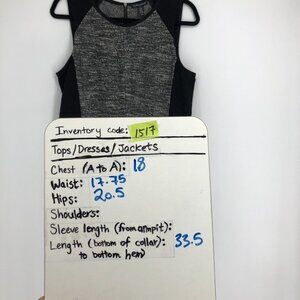 Inventory code: 1517
Tops/Dresses/Jackets
Chest (A to A): 18
Waist: 17.75
Hips: 20.5
Shoulders:
Sleeve length (from armpit):
Length (bottom of collar): 33.5
to bottom hem)